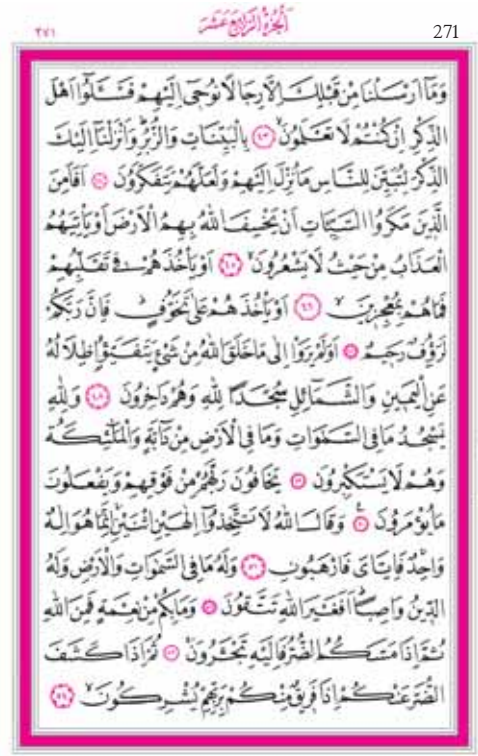 ٢٧١ اَلْجُزْءُ الرَّابِعَ عَشَرَ 271
وَمَٓا اَرْسَلْنَا مِنْ قَبْلِكَ اِلَّا رِجَالًا نُوحٓى اِلَيْهِمْ فَسْـَٔلُٓوا اَهْلَ
الذِّكْرِ اِنْ كُنْتُمْ لَا تَعْلَمُونَۙ ﴿٤٣﴾ بِالْبَيِّنَاتِ وَالزُّبُرِۜ وَاَنْزَلْنَٓا اِلَيْكَ
الذِّكْرَ لِتُبَيِّنَ لِلنَّاسِ مَا نُزِّلَ اِلَيْهِمْ وَلَعَلَّهُمْ يَتَفَكَّرُونَ ﴿٤٤﴾ اَفَاَمِنَ
الَّذ۪ينَ مَكَرُوا السَّيِّـَٔاتِ اَنْ يَخْسِفَ اللّٰهُ بِهِمُ الْاَرْضَ اَوْ يَأْتِيَهُمُ
الْعَذَابُ مِنْ حَيْثُ لَا يَشْعُرُونَۙ ﴿٤٥﴾ اَوْ يَأْخُذَهُمْ ف۪ي تَقَلُّبِهِمْ
فَمَا هُمْ بِمُعْجِز۪ينَۙ ﴿٤٦﴾ اَوْ يَأْخُذَهُمْ عَلٰى تَخَوُّفٍۜ فَاِنَّ رَبَّكُمْ
لَرَؤُ۫فٌ رَح۪يمٌ ﴿٤٧﴾ اَوَلَمْ يَرَوْا اِلٰى مَا خَلَقَ اللّٰهُ مِنْ شَيْءٍ يَتَفَيَّؤُ۬ا ظِلَالُهُ
عَنِ الْيَم۪ينِ وَالشَّمَٓائِلِ سُجَّدًا لِلّٰهِ وَهُمْ دَاخِرُونَ ﴿٤٨﴾ وَلِلّٰهِ
يَسْجُدُ مَا فِي السَّمٰوَاتِ وَمَا فِي الْاَرْضِ مِنْ دَٓابَّةٍ وَالْمَلٰٓئِكَةُ
وَهُمْ لَا يَسْتَكْبِرُونَ ﴿٤٩﴾ يَخَافُونَ رَبَّهُمْ مِنْ فَوْقِهِمْ وَيَفْعَلُونَ
مَا يُؤْمَرُونَ ﴿٥٠﴾ وَقَالَ اللّٰهُ لَا تَتَّخِذُٓوا اِلٰهَيْنِ اثْنَيْنِۚ اِنَّمَا هُوَ اِلٰهٌ
وَاحِدٌۚ فَاِيَّايَ فَارْهَبُونِ ﴿٥١﴾ وَلَهُ مَا فِي السَّمٰوَاتِ وَالْاَرْضِ وَلَهُ
الدّ۪ينُ وَاصِبًاۜ اَفَغَيْرَ اللّٰهِ تَتَّقُونَ ﴿٥٢﴾ وَمَا بِكُمْ مِنْ نِعْمَةٍ فَمِنَ اللّٰهِ
ثُمَّ اِذَا مَسَّكُمُ الضُّرُّ فَاِلَيْهِ تَجْـَٔرُونَۚ ﴿٥٣﴾ ثُمَّ اِذَا كَشَفَ
الضُّرَّ عَنْكُمْ اِذَا فَر۪يقٌ مِنْكُمْ بِرَبِّهِمْ يُشْرِكُونَۙ ﴿٥٤﴾